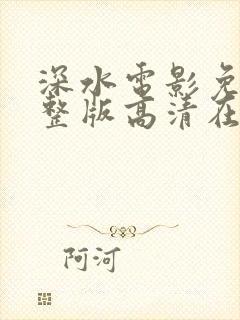 深水电影免
整版高清在
阿河